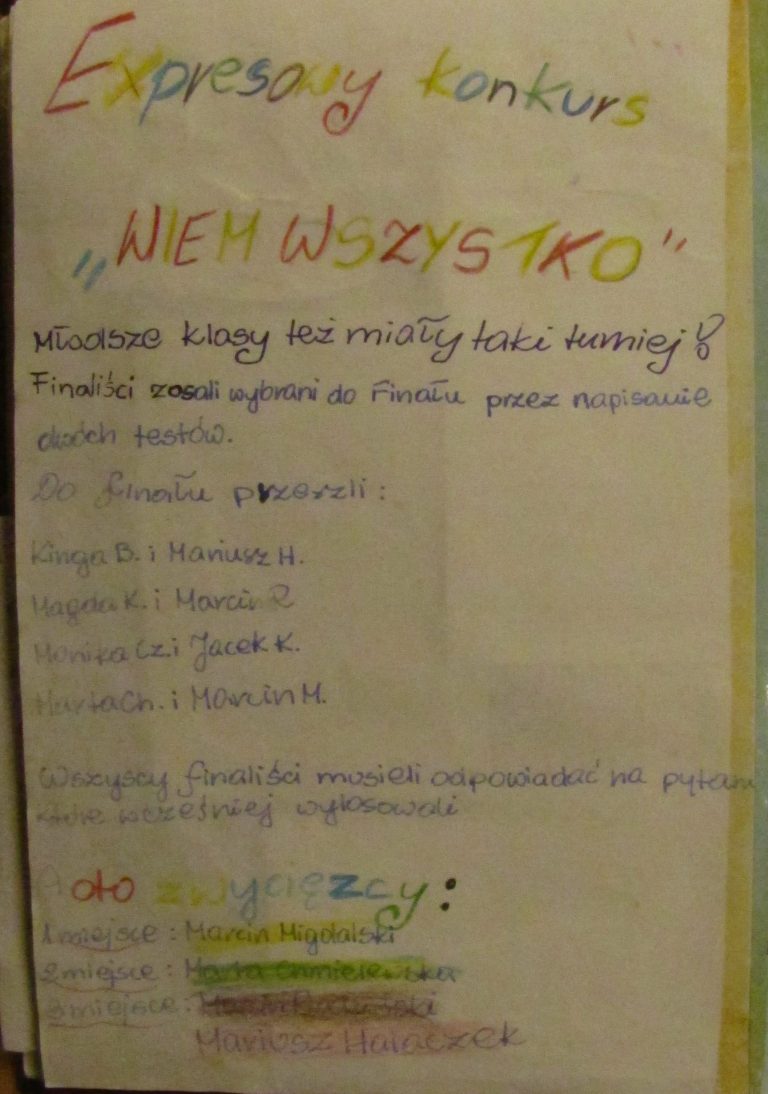 Expresowy konkurs
„WIEM WSZYSTKO"
Młodsze klasy też miały taki turniej!
Finaliści zosali wybrani do Finału przez napisanie
dwóch testów.
Do finału przeszli:
Kinga B. i Mariusz H.
Magda K. i Marcin R
Monika Cz. i Jacek K.
Marta Ch. i Marcin M.
Wszyscy finaliści musieli odpowiadać na pytan
które wcześniej wylosowali
A oto zwycięzcy:
1 miejsce: Marcin Migdalski
2 miejsce: Marta Chmielewska
3 miejsce: Marcin
Mariusz Halaczek